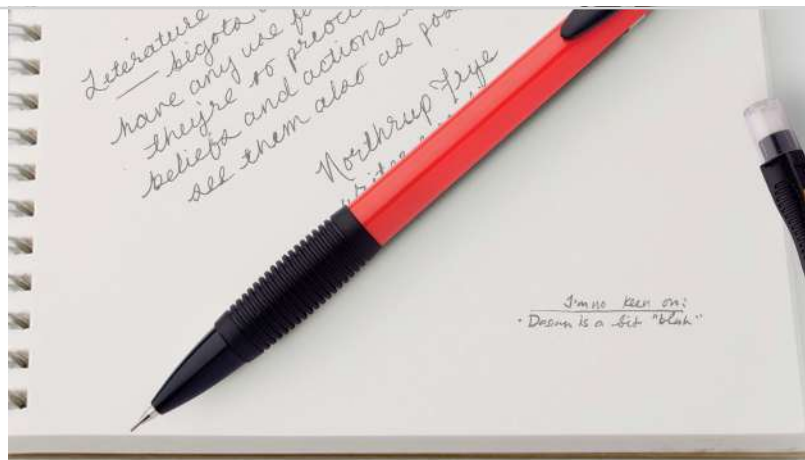 Literature
— bigots
have any use f
they're so preocc
beliefs and actions
see them also as pos
Northrup Frye
I'm no keen on:
is a bit "blah"